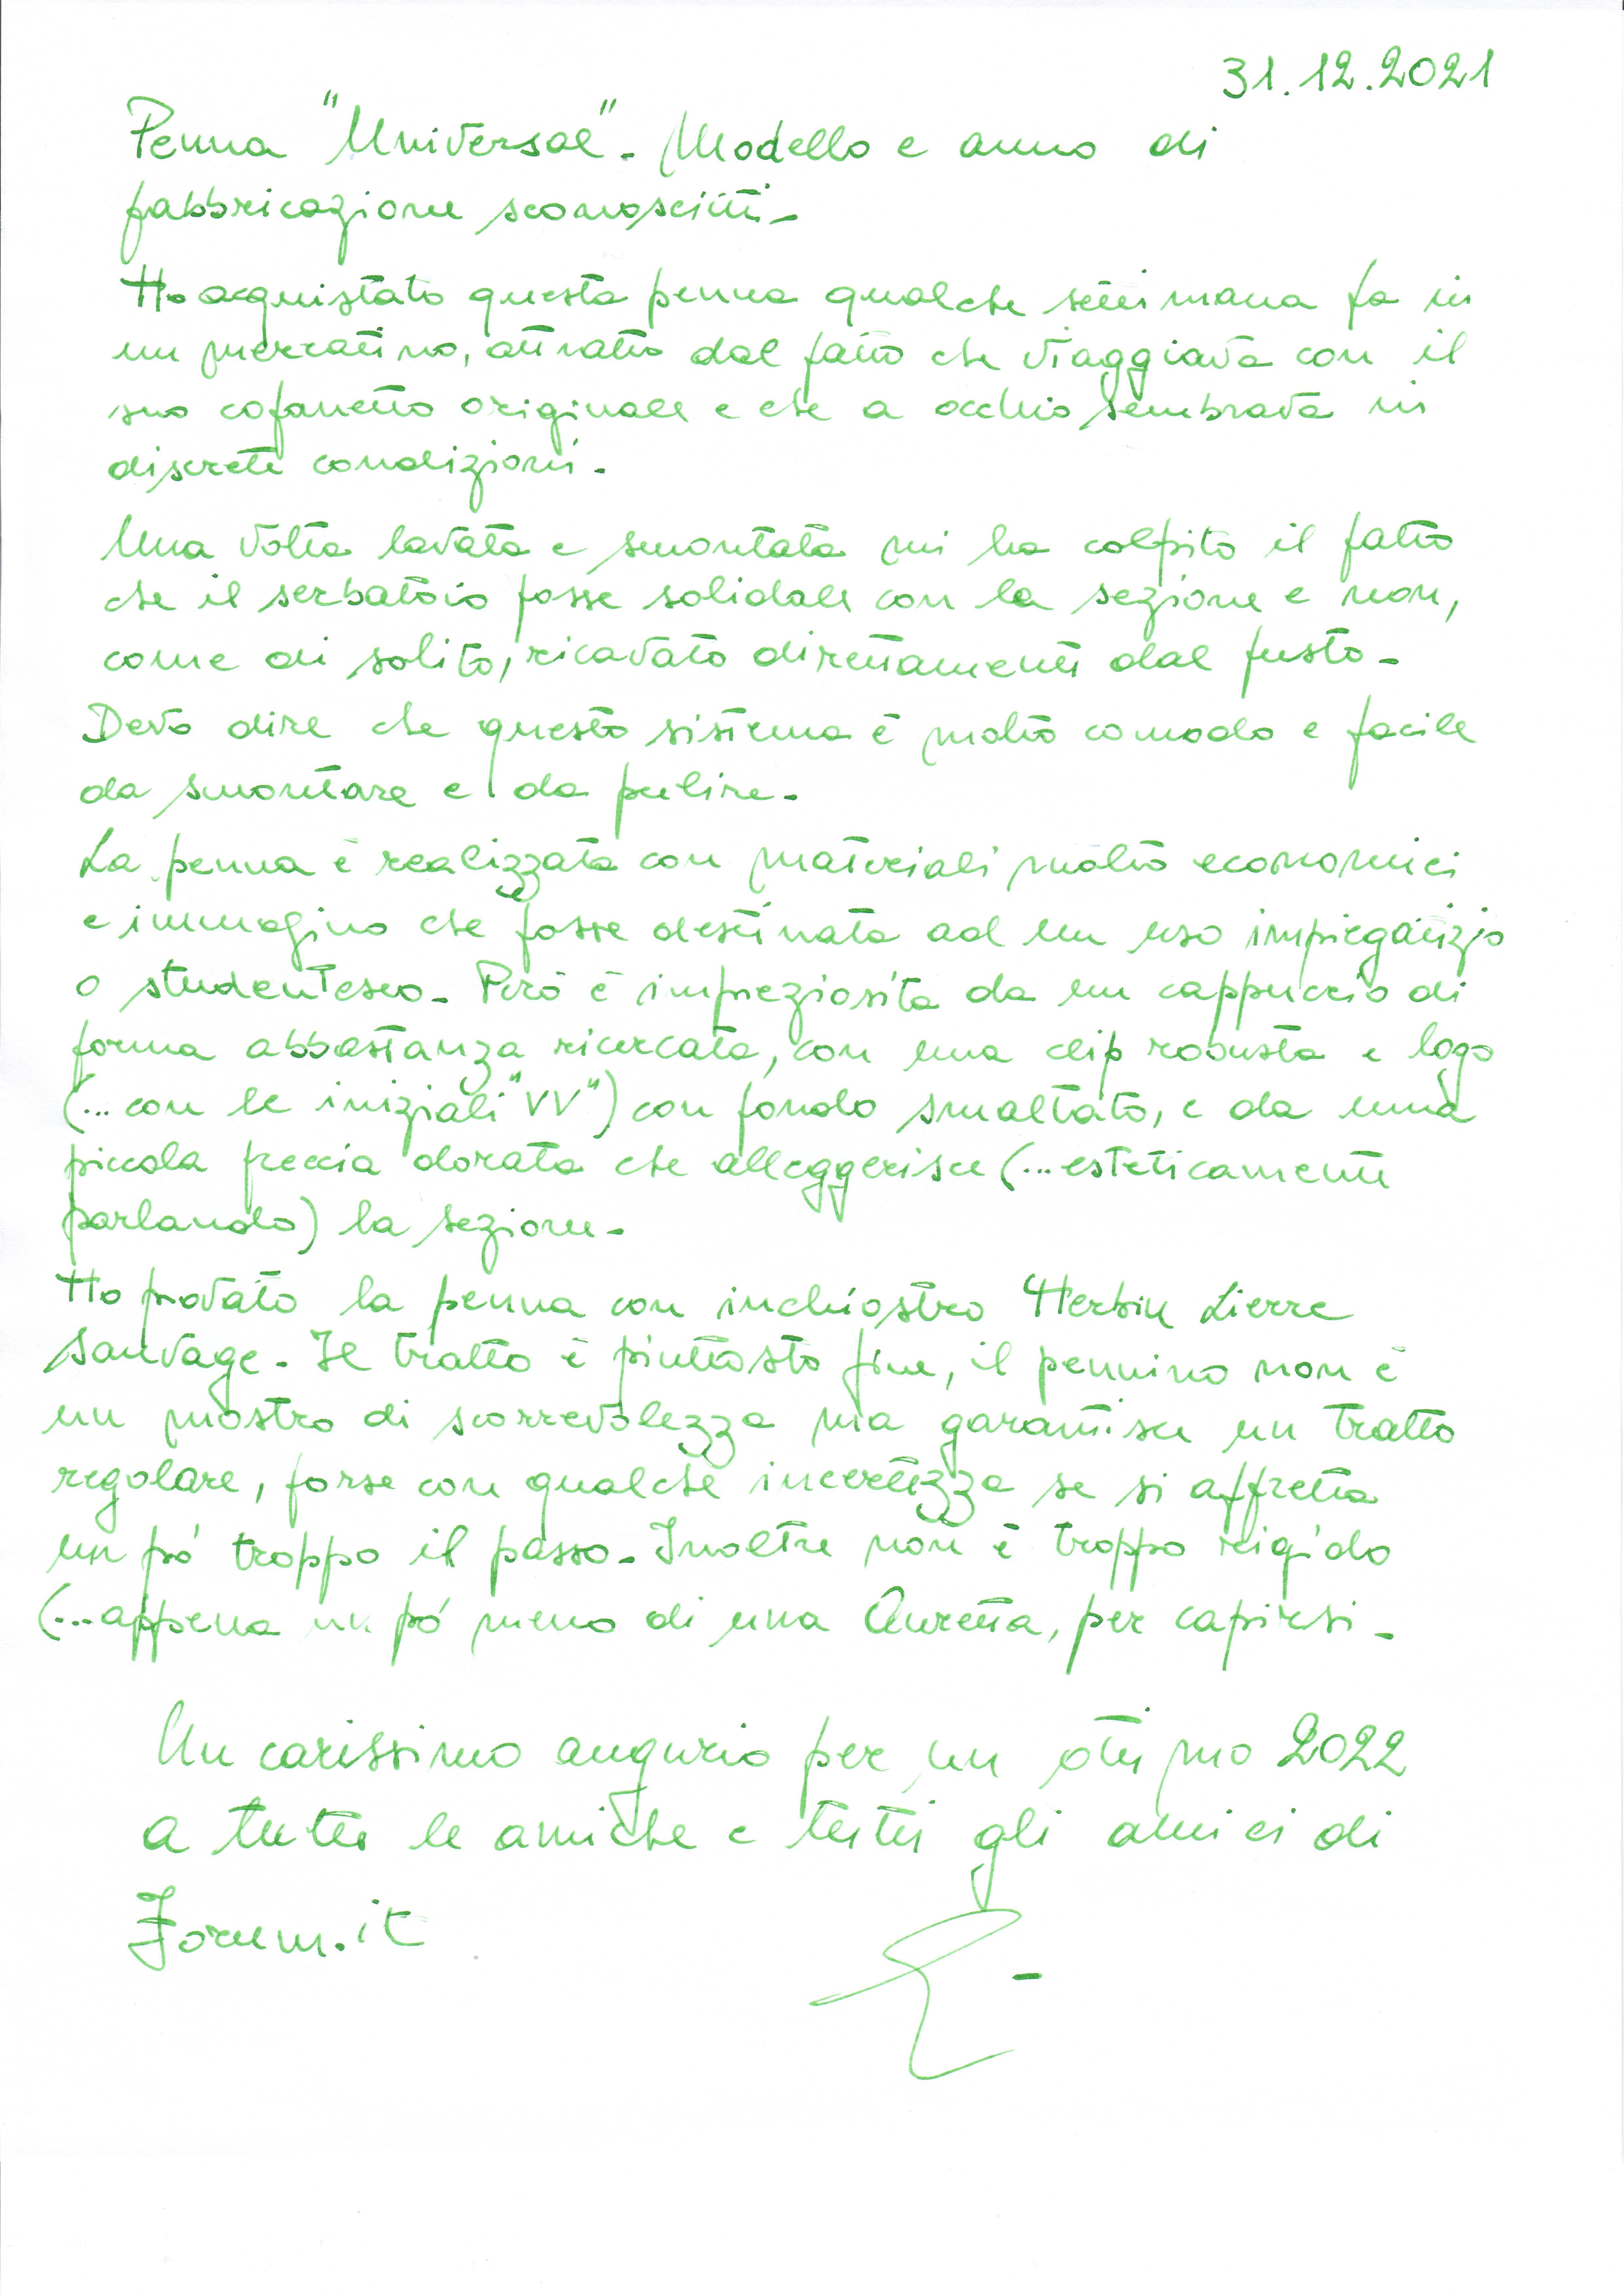 31.12.2021
Penna "Universal". Modello e anno di
fabbricazione sconosciuti.
Ho acquistato questa penna qualche settimana fa in
un mercatino, attratto dal fatto che viaggiava con il
suo cofanetto originale e che a occhio sembrava in
discrete condizioni.
Una volta lavata e smontata mi ha colpito il fatto
che il serbatoio fosse solidale con la sezione e non,
come di solito, ricavato direttamente dal fusto.
Devo dire che questo sistema è molto comodo e facile
da smontare e da pulire.
La penna è realizzata con materiali molto economici
e immagino che fosse destinata ad un uso impiegatizio
o studentesco. Però è impreziosita da un cappuccio di
forma abbastanza ricercata, con una clip robusta e logo
(... con le iniziali "VV") con fondo smaltato, e da una
piccola freccia dorata che alleggerisce (... esteticamente
parlando) la sezione.
Ho provato la penna con inchiostro Herbin Lierre
Sauvage. Il tratto è piuttosto fine, il pennino non è
un mostro di scorrevolezza ma garantisce un tratto
regolare, forse con qualche incertezza se si affretta
un pò troppo il passo. Inoltre non è troppo rigido
(... appena un pò meno di una Auretta, per capirsi.
Un carissimo augurio per un ottimo 2022
a tutte le amiche e tutti gli amici di
Forum.it